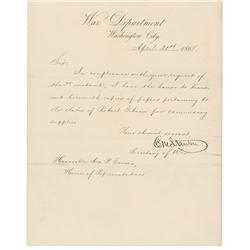 War Department
Washington City
April 22nd 1868.
Sir:
In compliance with your request of
the 7th instant, I have the honor to
herewith copies of papers pertaining to
the claim of Robert for commissary
supplies
Your obedient servant
Secretary of War
Honorable
House of Representatives